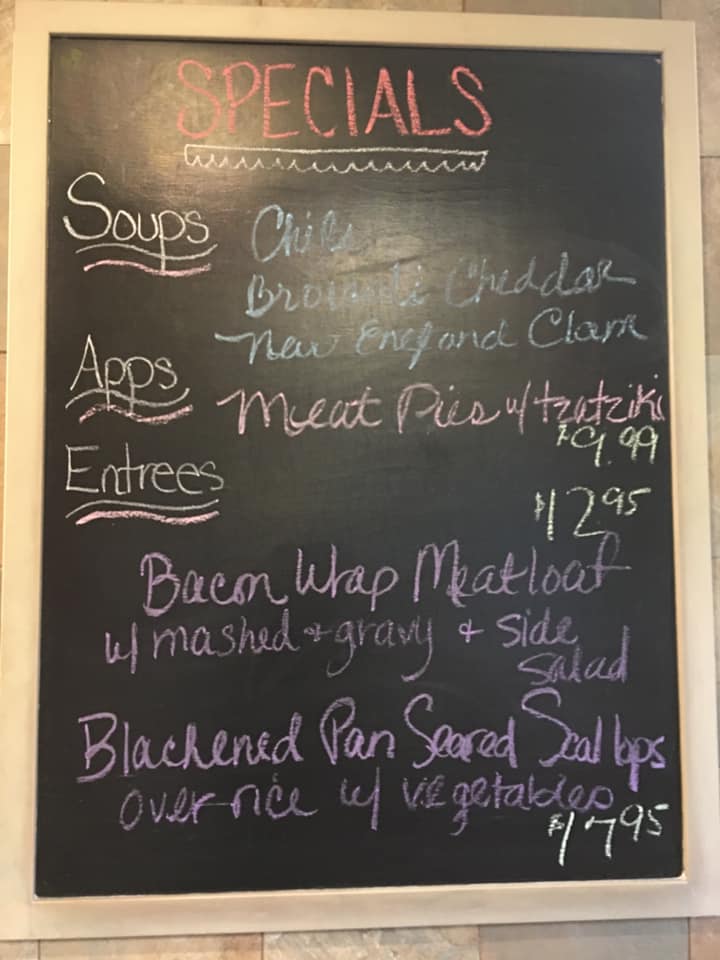 SPECIALS
Soups
Chili
Broccoli Cheddar
New England Clam
Apps
Meat Pies w/ tzatziki
$9.99
Entrees
$12.95
Bacon Wrap Meatloaf
w/ mashed + gravy + side
salad
Blackened Pan Seared Scallops
over rice w/ vegetables
$17.95